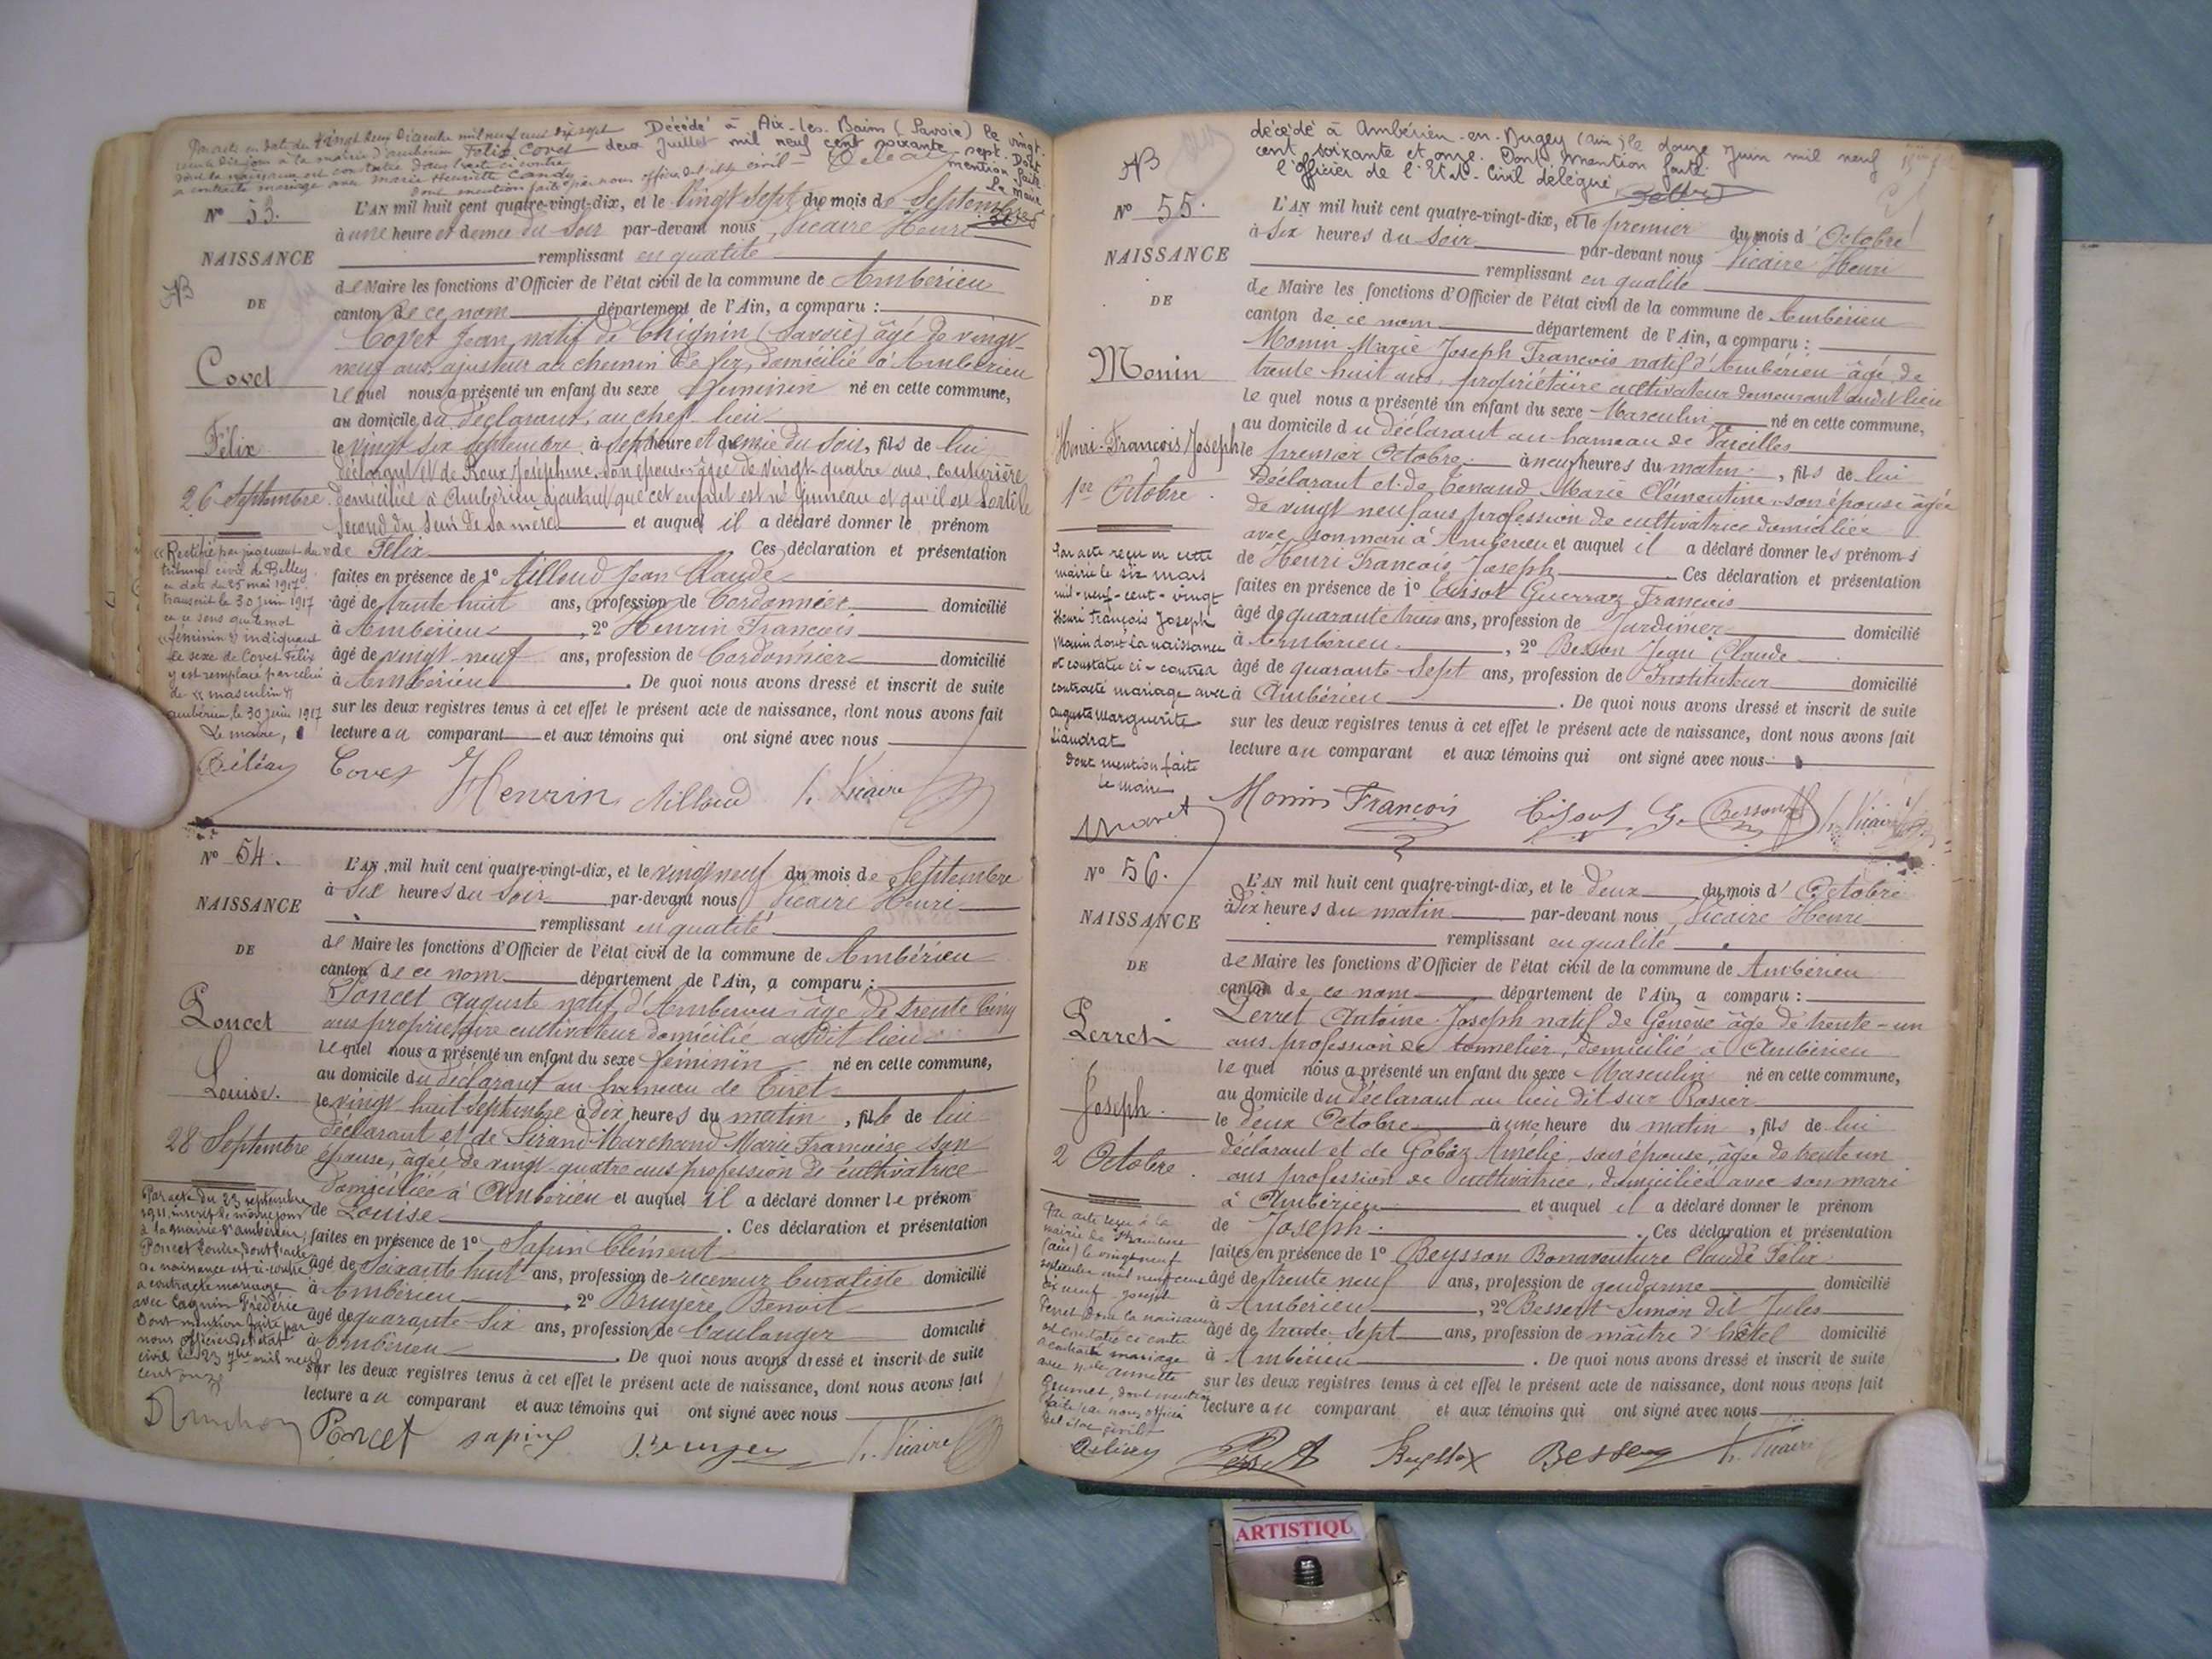 Par acte en date du vingt deux Décembre mil neuf cent dix sept
reçu le dit jour à la mairie d'ambérieu Félix Covet
dont la naissance est constatée dans l'acte ci contre
a contracté mariage avec Marie Henriette Candy
dont mention faite par nous officier de l'état civil
Décédé à Aix-les-Bains (Savoie) le vingt-
deux Juillet mil neuf cent soixante sept. Dont
mention faite
Le Maire
N° 53.
NAISSANCE
DE
Covet
Félix
26 Septembre
L'AN mil huit cent quatre-vingt-dix, et le vingt sept du mois de Septembre
à une heure et demie du soir par-devant nous Vicaire Henri
remplissant en qualité
de Maire les fonctions d'Officier de l'état civil de la commune de Ambérieu
canton de ce nom département de l'Ain, a comparu :
Covet Jean natif de Chignin (Savoie) âgé de vingt
neuf ans, ajusteur au chemin de fer, domicilié à Ambérieu
lequel nous a présenté un enfant du sexe féminin né en cette commune,
au domicile du déclarant, au chef lieu
le vingt six septembre à sept heure et demie du soir, fils de lui
déclarant et de Roux Joséphine, son épouse âgée de vingt-quatre ans, couturière
domiciliée à Ambérieu ajoutant que cet enfant est né jumeau et qu'il est sorti le
second du sein de sa mère et auquel il a déclaré donner le prénom
de Félix Ces déclaration et présentation
faites en présence de 1° Ailloud Jean Claude
âgé de trente huit ans, profession de Cordonnier domicilié
à Ambérieu, 2° Henrin François
âgé de vingt-neuf ans, profession de Cordonnier domicilié
à Ambérieu. De quoi nous avons dressé et inscrit de suite
sur les deux registres tenus à cet effet le présent acte de naissance, dont nous avons fait
lecture au comparant et aux témoins qui ont signé avec nous
« Rectifié par jugement du
tribunal civil de Belley
en date du 25 mai 1917
transcrit le 30 juin 1917
en ce sens que le mot
« féminin » indiquant
le sexe de Covet Félix
y est remplacé par celui
de « masculin »
ambérieu le 30 juin 1917
Le maire,
Covet Henrin Ailloud h. Vicaire
N° 54.
NAISSANCE
DE
Poncet
Louise.
28 Septembre
L'AN mil huit cent quatre-vingt-dix, et le vingt neuf du mois de Septembre
à six heures du soir par-devant nous Vicaire Henri
remplissant en qualité
de Maire les fonctions d'Officier de l'état civil de la commune de Ambérieu
canton de ce nom département de l'Ain, a comparu :
Poncet Auguste natif d'Ambérieu âgé de trente cinq
ans propriétaire cultivateur domicilié audit lieu
lequel nous a présenté un enfant du sexe féminin né en cette commune,
au domicile du déclarant au hameau de Tiret
le vingt huit Septembre à dix heures du matin, fille de lui
déclarant et de Sirand-Marchand Marie Françoise son
épouse, âgée de vingt quatre ans profession de cultivatrice
domiciliée à Ambérieu et auquel il a déclaré donner le prénom
de Louise. Ces déclaration et présentation
faites en présence de 1° Sapin Clément
âgé de soixante huit ans, profession de receveur buraliste domicilié
à Ambérieu, 2° Bruyère Benoit
âgé de quarante-six ans, profession de boulanger domicilié
à Ambérieu. De quoi nous avons dressé et inscrit de suite
sur les deux registres tenus à cet effet le présent acte de naissance, dont nous avons fait
lecture au comparant et aux témoins qui ont signé avec nous
Par acte du 23 septembre
1911, inscrit le même jour
à la mairie d'ambérieu,
Poncet Louise dont l'acte
de naissance est ci-contre
a contracté mariage
avec Cagnin Frédéric
Dont mention faite par
nous officier de l'état
civil le 23 7bre mil neuf
cent onze
Poncet sapin h. Vicaire
décédé à Ambérieu-en-Bugey (Ain) le douze Juin mil neuf
cent soixante et onze. Dont mention faite.
l'Officier de l'Etat-Civil délégué
N° 55.
NAISSANCE
DE
Monin
Henri-François Joseph
1er Octobre.
L'AN mil huit cent quatre-vingt-dix, et le premier du mois d'Octobre
à six heures du soir par-devant nous Vicaire Henri
remplissant en qualité
de Maire les fonctions d'Officier de l'état civil de la commune de Ambérieu
canton de ce nom département de l'Ain, a comparu :
Monin Marie Joseph François natif d'Ambérieu âgé de
trente-huit ans, propriétaire cultivateur demeurant audit lieu
lequel nous a présenté un enfant du sexe Masculin né en cette commune,
au domicile du déclarant au hameau de Vareilles
le premier Octobre à neuf heures du matin, fils de lui
Déclarant et de Tenand Marie Clémentine son épouse âgée
de vingt neuf ans profession de cultivatrice domiciliée
avec son mari à Ambérieu et auquel il a déclaré donner les prénoms
de Henri François Joseph. Ces déclaration et présentation
faites en présence de 1° Tissot Guerraz François
âgé de quarante trois ans, profession de Jardinier domicilié
à Ambérieu, 2° Besson Jean Claude
âgé de quarante-sept ans, profession de Instituteur domicilié
à Ambérieu. De quoi nous avons dressé et inscrit de suite
sur les deux registres tenus à cet effet le présent acte de naissance, dont nous avons fait
lecture au comparant et aux témoins qui ont signé avec nous
Par acte reçu en cette
mairie le six mars
mil-neuf-cent-vingt
Henri François Joseph
Monin dont la naissance
est constatée ci-contre a
contracté mariage avec
Auguste Marguerite
Liaudrat
Dont mention faite
Le Maire
Monin François Tissot G. Besson h. Vicaire
N° 56.
NAISSANCE
DE
Perret
Joseph.
2 Octobre.
L'AN mil huit cent quatre-vingt-dix, et le deux du mois d'Octobre
à dix heures du matin par-devant nous Vicaire Henri
remplissant en qualité
de Maire les fonctions d'Officier de l'état civil de la commune de Ambérieu
canton de ce nom département de l'Ain, a comparu :
Perret Antoine Joseph natif de Genève âgé de trente-un
ans profession de tonnelier, domicilié à Ambérieu
lequel nous a présenté un enfant du sexe Masculin né en cette commune,
au domicile du déclarant au lieu dit sur Rosier
le deux Octobre à une heure du matin, fils de lui
déclarant et de Gobaz Amélie son épouse, âgée de trente un
ans profession de cultivatrice, domiciliée avec son mari
à Ambérieu et auquel il a déclaré donner le prénom
de Joseph. Ces déclaration et présentation
faites en présence de 1° Beysson Bonaventure Claude Félix
âgé de trente neuf ans, profession de gendarme domicilié
à Ambérieu, 2° Bessent Simon dit Jules
âgé de trente-sept ans, profession de maître d'hôtel domicilié
à Ambérieu. De quoi nous avons dressé et inscrit de suite
sur les deux registres tenus à cet effet le présent acte de naissance, dont nous avons fait
lecture au comparant et aux témoins qui ont signé avec nous
Par acte reçu à la
mairie de
(Ain) le vingt neuf
mil neuf cent
dix neuf Joseph
Perret dont la naissance
est constatée ci contre
a contracté mariage
avec Annette
Grumet, dont mention
faite par nous officier
de l'état civil
h. Vicaire
ARTISTIQU